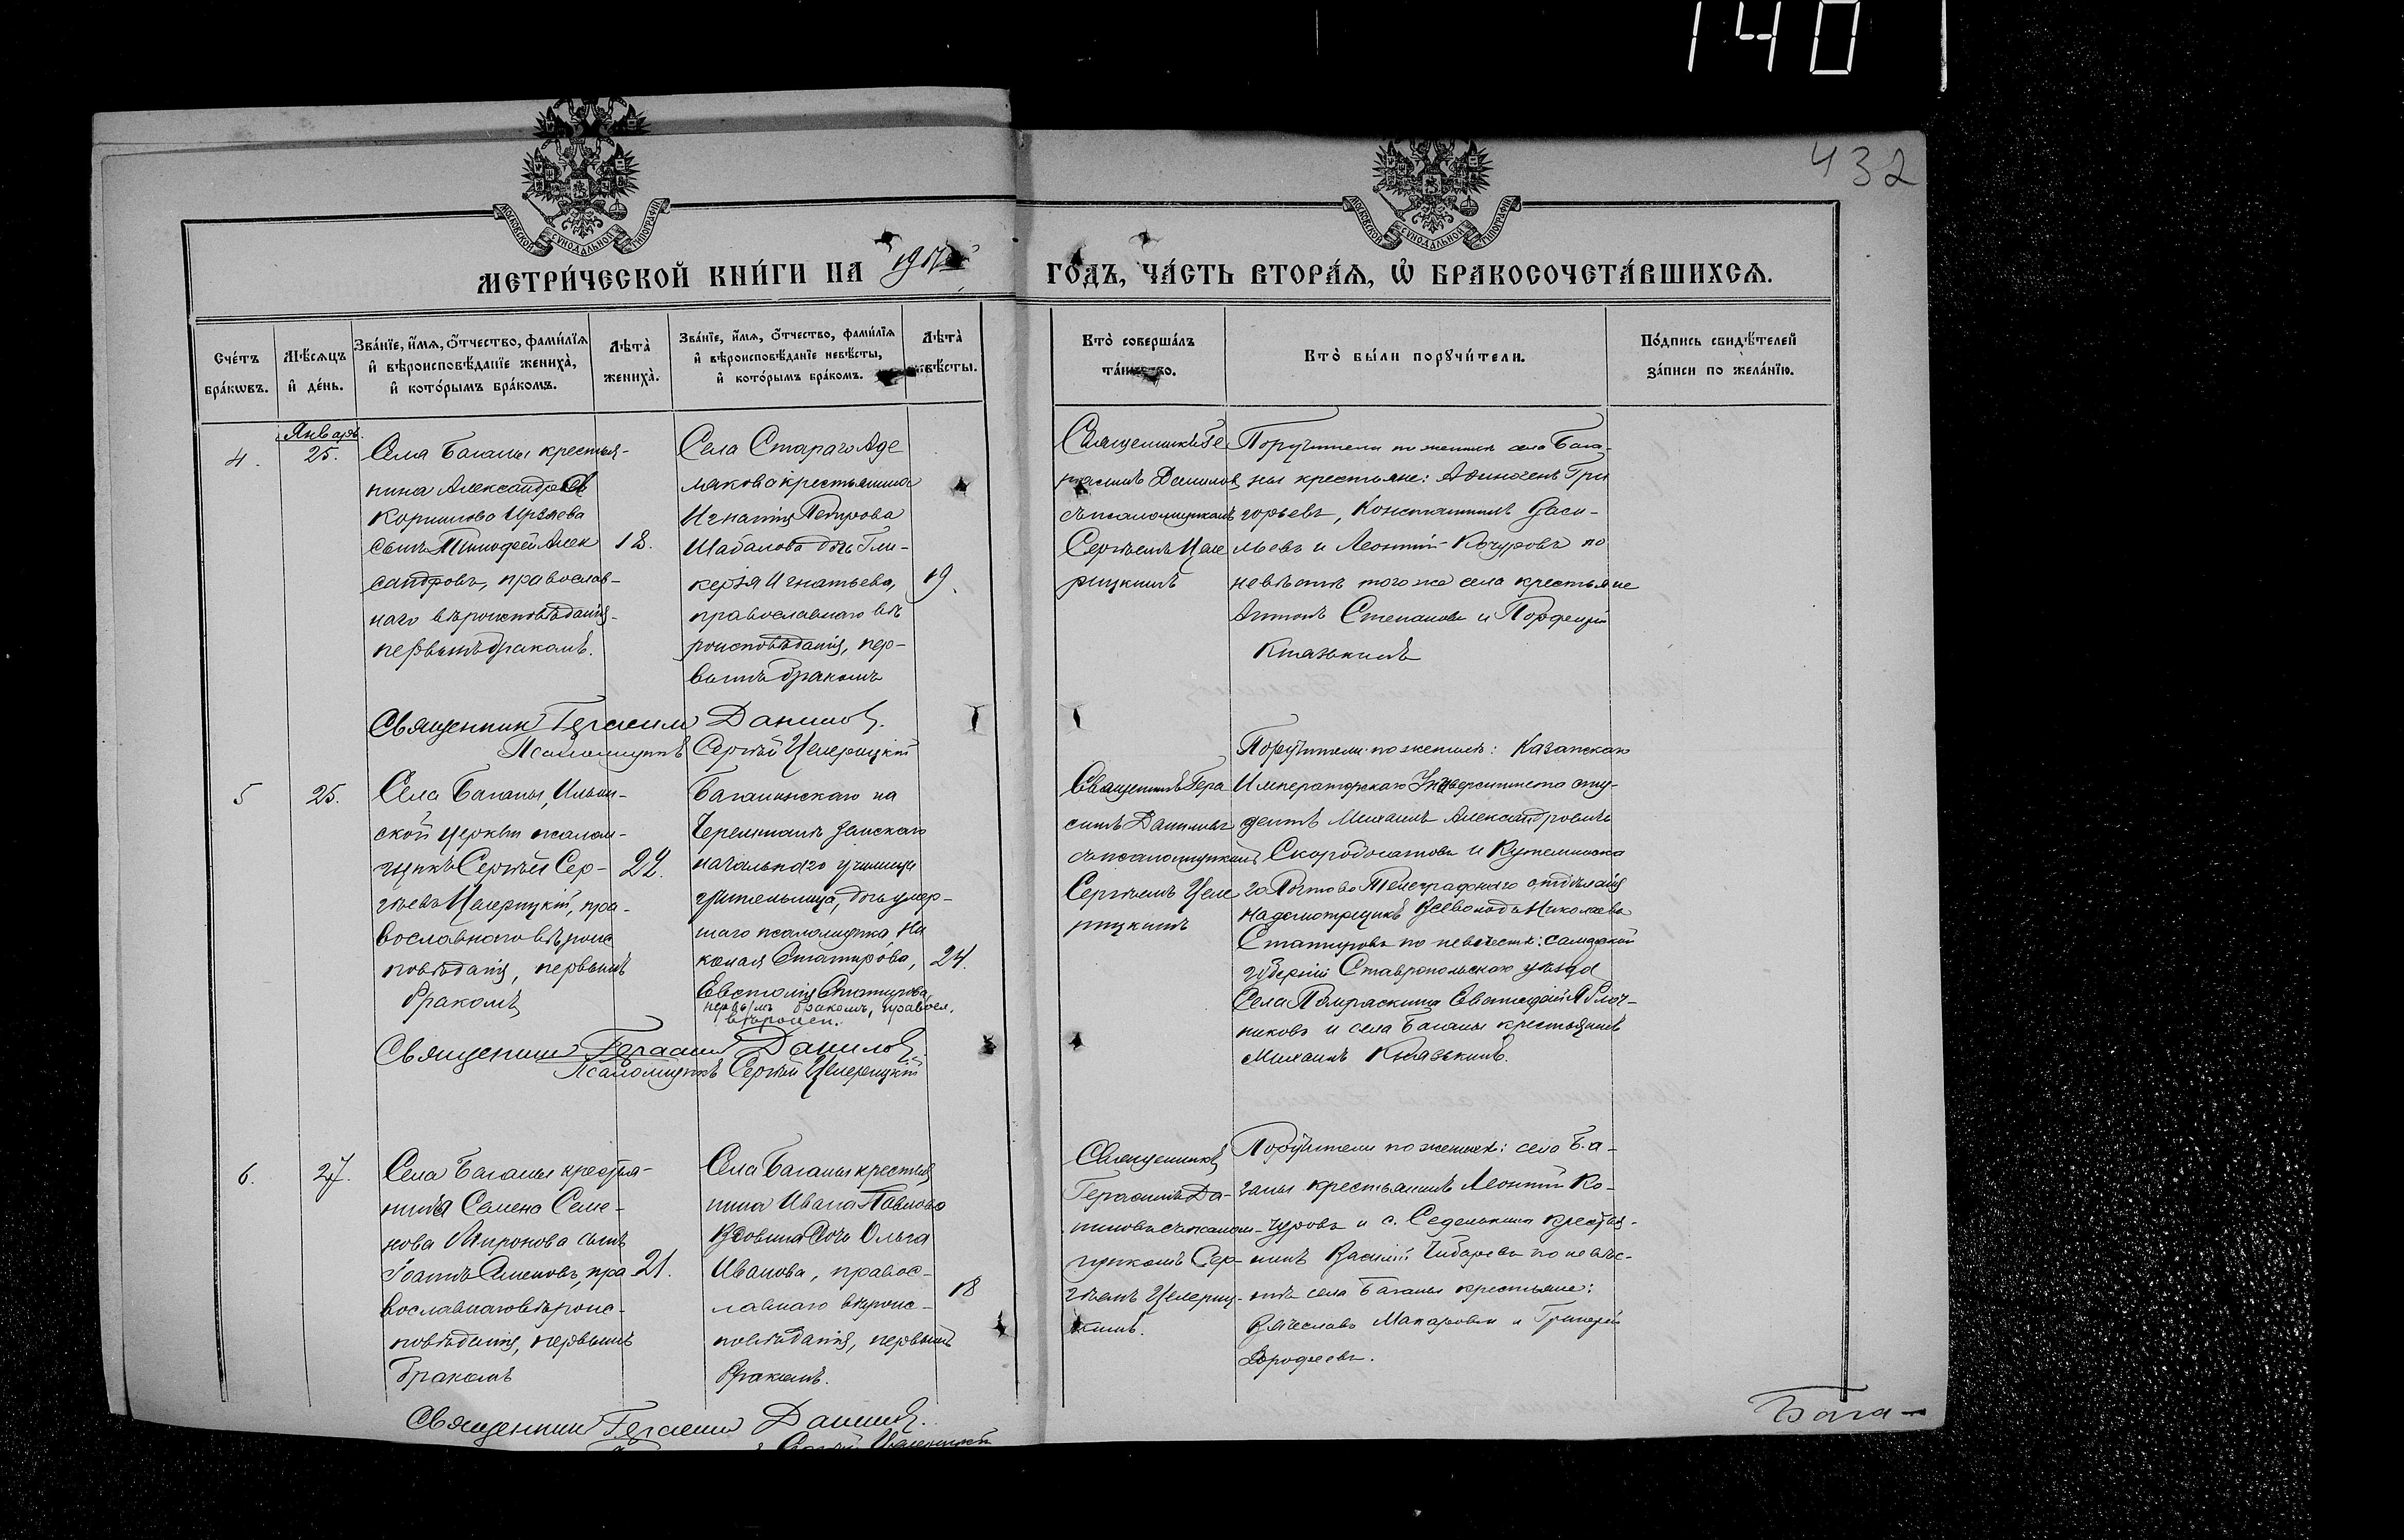 140
432
МОСКОВСКОЙ СѴНОДАЛЬНОЙ ТИПОГРАФІИ
МОСКОВСКОЙ СѴНОДАЛЬНОЙ ТИПОГРАФІИ
МЕТРИ́ЧЕСКОЙ КНИ́ГИ НА 1917й ГО́ДЪ, ЧА́СТЬ ВТОРА́Я, Ѡ БРАКОСОЧЕТА́ВШИХСЯ.
Сче́тъ бра́кѡвъ.
Мѣ́сяцъ и де́нь.
Зва́нїе, и́мя, ѻ́тчество, фами́лїя
и вѣроисповѣ́данїе жениха̀,
и кото́рымъ бра́комъ.
Лѣта̀ жениха̀.
Зва́нїе, и́мя, ѻ́тчество, фами́лїя
и вѣроисповѣ́данїе невѣ́сты,
и кото́рымъ бра́комъ.
Лѣта̀ невѣ́сты.
Кто̀ соверша́лъ
та́инство.
Кто̀ бы́ли порꙋчи́тели.
По́дпись свидѣ́телей
за́писи по жела́нїю.
Январь.
4.
25.
Села Баганы крестья-
нина Александра
Корнилова
сынъ Тимофей Алек
сандровъ, православ-
наго вѣроисповѣданія
первымъ бракомъ.
18.
Села Стараго Аде
лякова крестьянина
Игнатія Петрова
Шабалова дочь Гли-
керія Игнатьева,
православнаго вѣ
роисповѣданія, пер-
вымъ бракомъ
19.
Священникъ Ге
расимъ Данилов
съ псаломщикомъ
Сергѣемъ Целе
рицкимъ
Поручители по женихѣ села Бага-
ны крестьяне: Афиногенъ Гри
горьевъ, Константинъ Васи-
льевъ и Леонтій Кочуровъ по
невѣстѣ того же села крестьяне
Антонъ Степановъ и Порфирій
Князькинъ
Священникъ Герасим Данилов.
Псаломщикъ Сергѣй Целерицкій
5
25.
Села Баганы, Ильин-
ской церкви псалом-
щикъ Сергѣй Сер-
гѣевъ Целерицкій, пра-
вославнаго вѣроис
повѣданія, первымъ
бракомъ
22.
Баганинскаго на
Черемшанѣ земскаго
начальнаго училища
учительница, дочь умер-
шаго псаломщика Ни
колая Статирова,
Евстолія Статирова,
первымъ бракомъ, правосл.
вѣроисп.
24.
Священникъ Гера
симъ Даниловъ
съ псаломщикомъ
Сергѣемъ Целе
рицкимъ
Поручители по женихѣ: Казанскаго
Императорскаго Университета сту-
дентъ Михаилъ Александровичъ
Скоробогатовъ и
го Почтово Телеграфнаго отдѣленія
надсмотрщикъ Всеволодъ Николаевъ
Статировъ по невѣстѣ: Самарской
губерніи Ставропольскаго уѣзда
Села
и села Баганы крестьянинъ
Михаилъ Князькинъ.
Священник Герасим Данилов.
Псаломщикъ Сергѣй Целерицкій
6.
27.
Села Баганы крестья-
нина Семена Семе-
нова Миронова сынъ
Іоаннъ Семеновъ, пра
вославнаго вѣроис-
повѣданія, первымъ
бракомъ
21.
Села Баганы крестья
нина Ивана Павлова
Вдовина дочь Ольга
Иванова, правос-
лавнаго вѣроис-
повѣданія, первымъ
бракомъ.
18
Священникъ
Герасимъ Да-
ниловъ съ псалом-
щикомъ Сер-
гѣемъ Целериц-
кимъ.
Поручители по женихѣ: села Ба-
ганы крестьянинъ Леонтій Ко-
чуровъ и с. Седелькина крестья-
нинъ Василій Чибаревъ по невѣс-
тѣ села Баганы крестьяне:
Вячеславъ Макаровъ и Григорій
Дорофеевъ.
Священник Герасим Данилов.
Сергѣй Целерицкій
Бага-